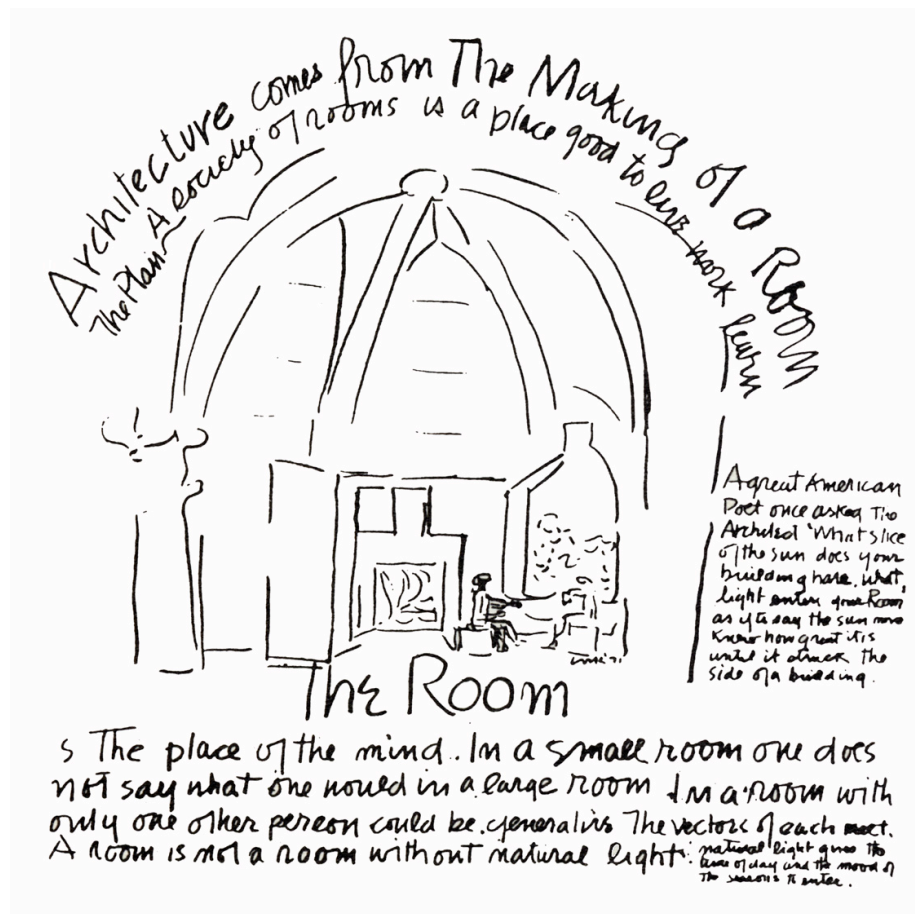 Architecture comes from The Making of a Room
The Plan – A society of rooms is a place good to live work learn
A great American
Poet once asked The
Architect 'What slice
of the sun does your
building have. What
light enters your Room'
as if to say the sun never
knew how great it is
until it struck the
side of a building.
The Room
s The place of the mind. In a small room one does
not say what one would in a large room In a room with
only one other person could be generative The vectors of each meet.
A room is not a room without natural light.
natural light gives the
time of day and the mood of
The seasons to enter.